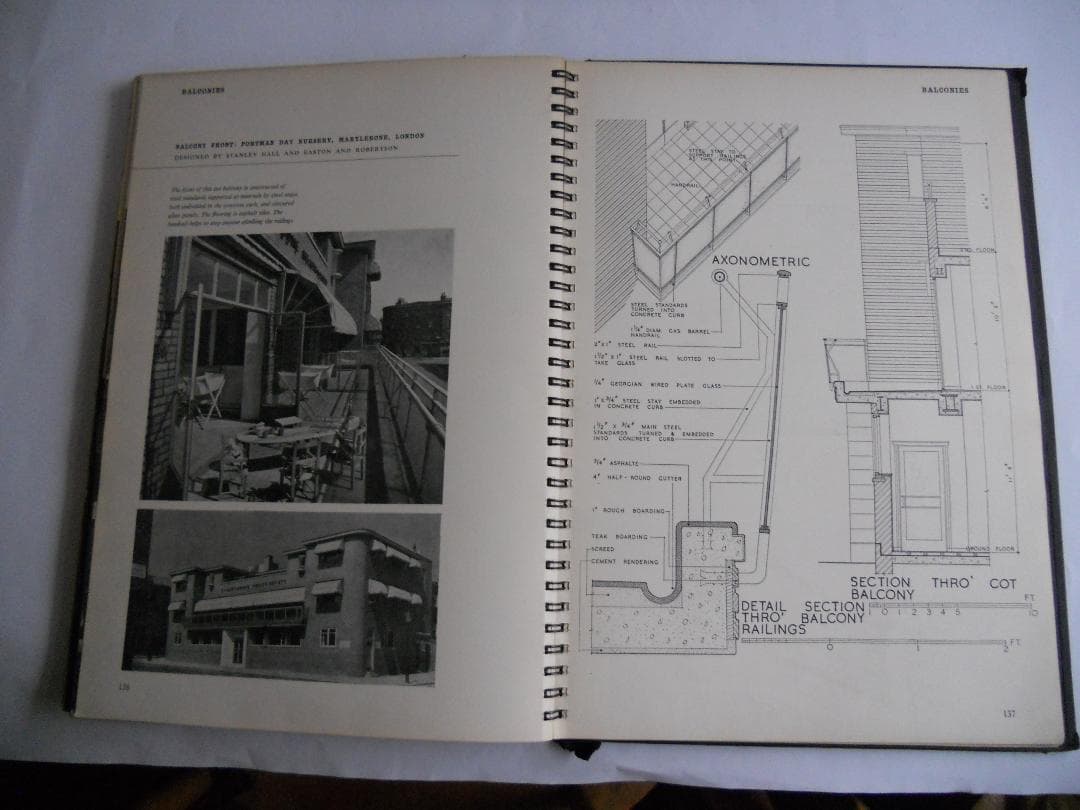 BALCONIES
BALCONY FRONT: PORTMAN DAY NURSERY, MARYLEBONE, LONDON
DESIGNED BY STANLEY HALL AND EASTON AND ROBERTSON
The front of this cot balcony is constructed of
steel standards supported at intervals by steel stays
both embedded in the concrete curb, and
glass panels. The flooring is asphalt tiles. The
handrail helps to stop anyone climbing the railings
136
BALCONIES
STEEL STAY TO
SUPPORT RAILINGS
AT THIS POINT
HANDRAIL
AXONOMETRIC
STEEL STANDARDS
TURNED INTO
CONCRETE CURB
1¼" DIAM. GAS BARREL
HANDRAIL
2"X1" STEEL RAIL
1½" X 1" STEEL RAIL SLOTTED TO
TAKE GLASS
¼" GEORGIAN WIRED PLATE GLASS
1" X ¾" STEEL STAY EMBEDDED
IN CONCRETE CURB
1½" X ¾" MAIN STEEL
STANDARDS TURNED & EMBEDDED
INTO CONCRETE CURB
¾" ASPHALTE
4" HALF-ROUND GUTTER
1" ROUGH BOARDING
TEAK BOARDING
SCREED
CEMENT RENDERING
DETAIL SECTION
THRO' BALCONY
RAILINGS
0 1 2 FT.
2ND. FLOOR
1 ST. FLOOR
GROUND FLOOR
SECTION THRO' COT
BALCONY
1 0 1 2 3 4 5 10 FT.
137